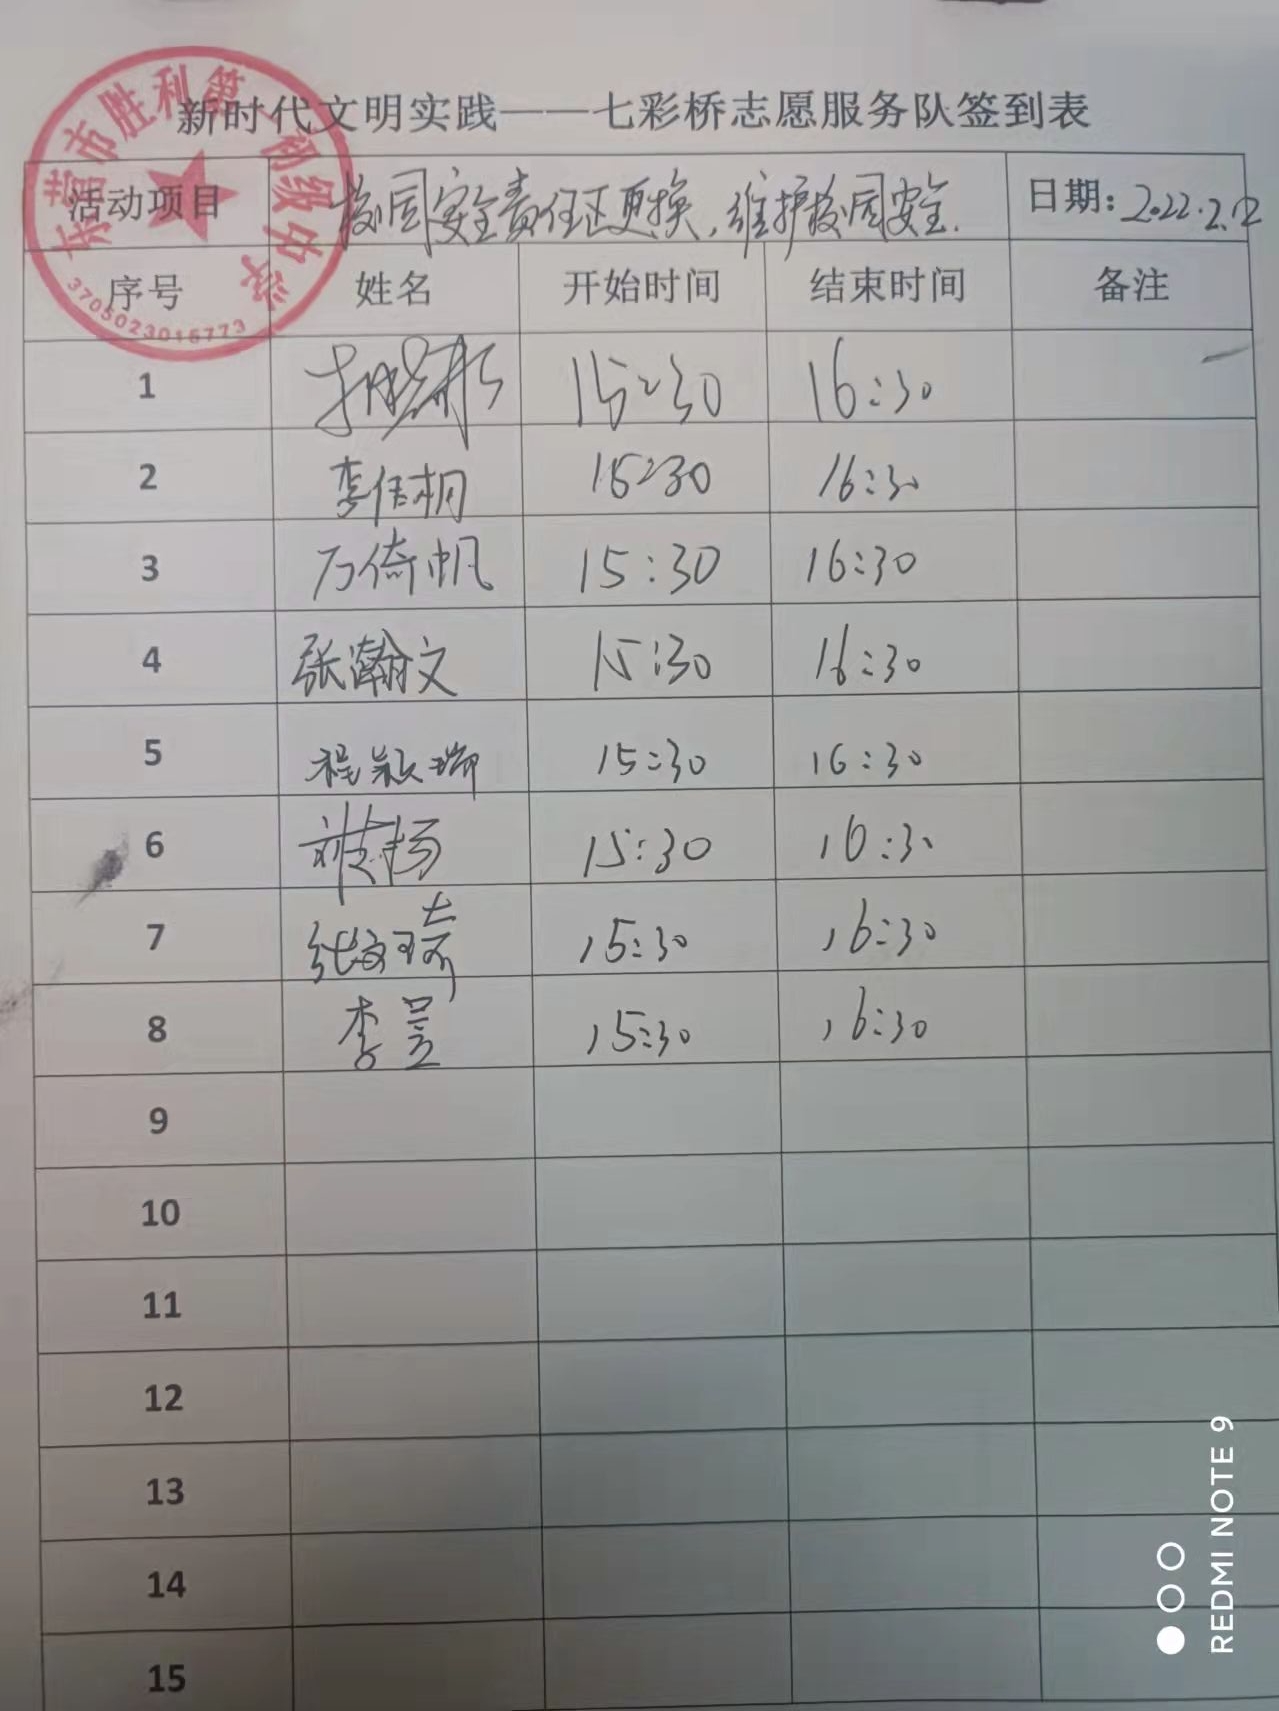 新时代文明实践——七彩桥志愿服务队签到表
东营市胜利第 初级中学
3705023015773
活动项目 校园安全责任区更换,维护校园安全. 日期:2022.2.12
序号 姓名 开始时间 结束时间 备注
1 15:30 16:30
2 李信桐 15:30 16:30
3 万倚帆 15:30 16:30
4 张瀚文 15:30 16:30
5 程颖瑞 15:30 16:30
6 15:30 16:30
7 张文琦 15:30 16:30
8 李昱 15:30 16:30
9
10
11
12
13
14
15
REDMI NOTE 9